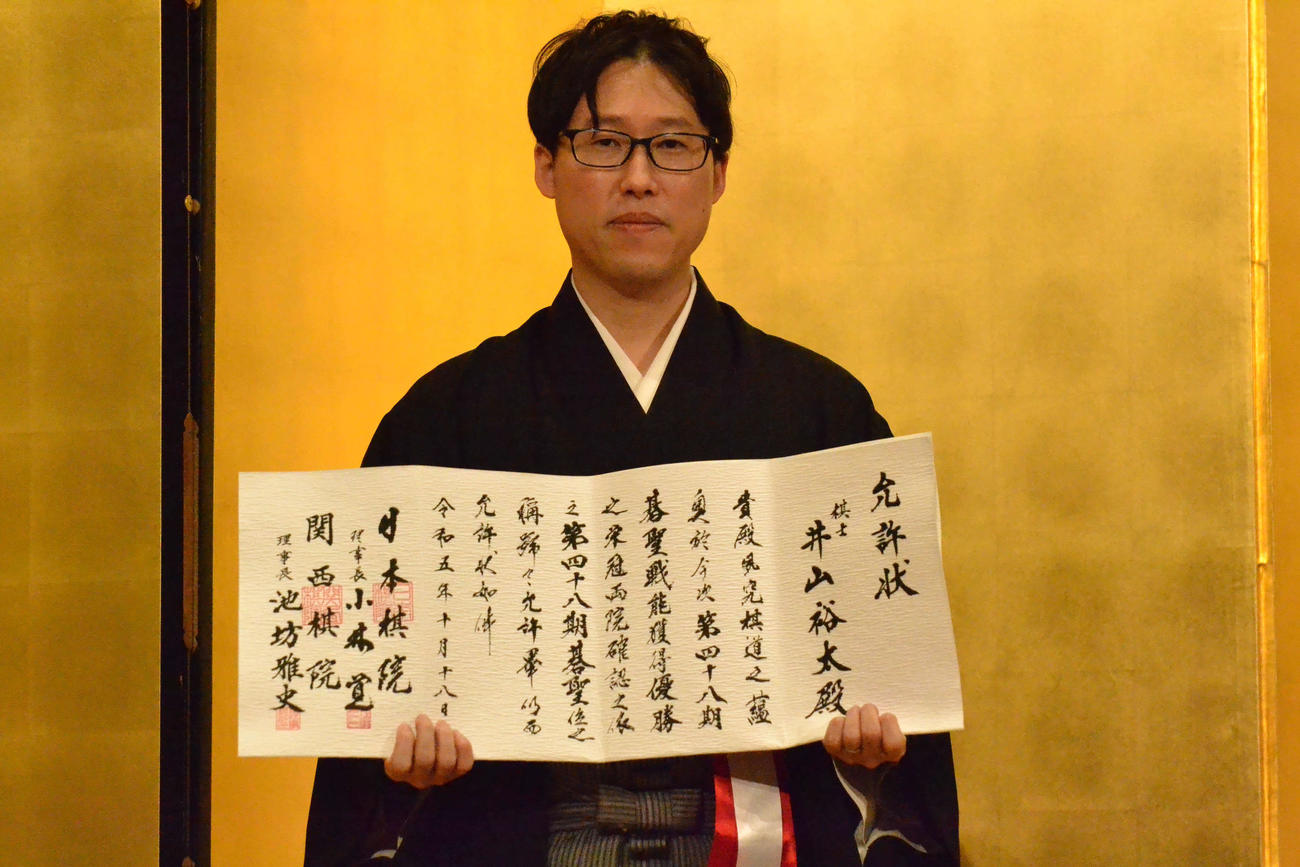 允許状
棋士
井山裕太殿
貴殿夙究棋道之蘊
奥於今次第四十八期
碁聖戦能獲得優勝
之栄冠両院確認之依
之第四十八期碁聖位之
称号々允許畢仍而
允許状如件
令和五年十月十八日
日本棋院
理事長 小林覚
関西棋院
理事長 池坊雅史